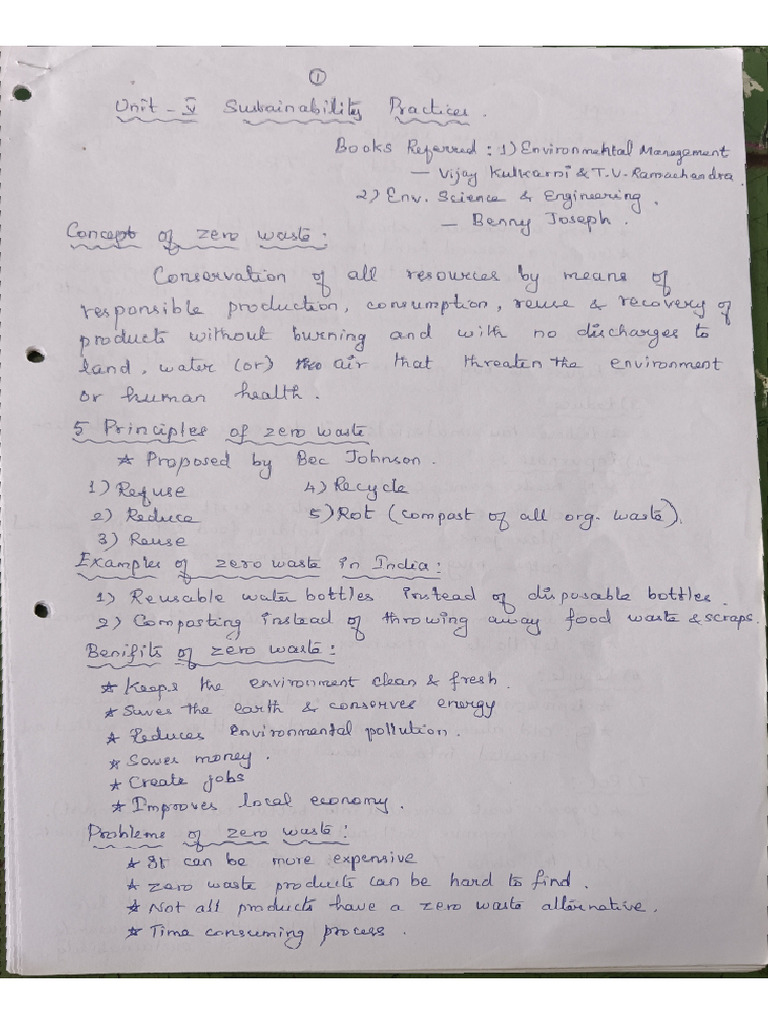 ①
Unit - V Sustainability Practices.
Books Referred : 1) Environmental Management
- Vijay Kulkarni & T.V. Ramachandra
2) Env. Science & Engineering.
- Benny Joseph.
Concept of zero waste :
Conservation of all resources by means of
responsible production, consumption, reuse & recovery of
products without burning and with no discharges to
land, water (or) air that threaten the environment
or human health.
5 Principles of zero waste
* Proposed by Bec Johnson.
1) Refuse 4) Recycle
2) Reduce 5) Rot (compost of all org. waste).
3) Reuse
Examples of zero waste in India :
1) Reusable water bottles instead of disposable bottles.
2) Composting instead of throwing away food waste & scraps.
Benifits of zero waste :
* Keeps the environment clean & fresh.
* Saves the earth & conserves energy
* Reduces Environmental pollution.
* Saves money.
* Create jobs
* Improves local economy.
Problems of zero waste :
* It can be more expensive
* zero waste products can be hard to find.
* Not all products have a zero waste alternative.
* Time consuming process.